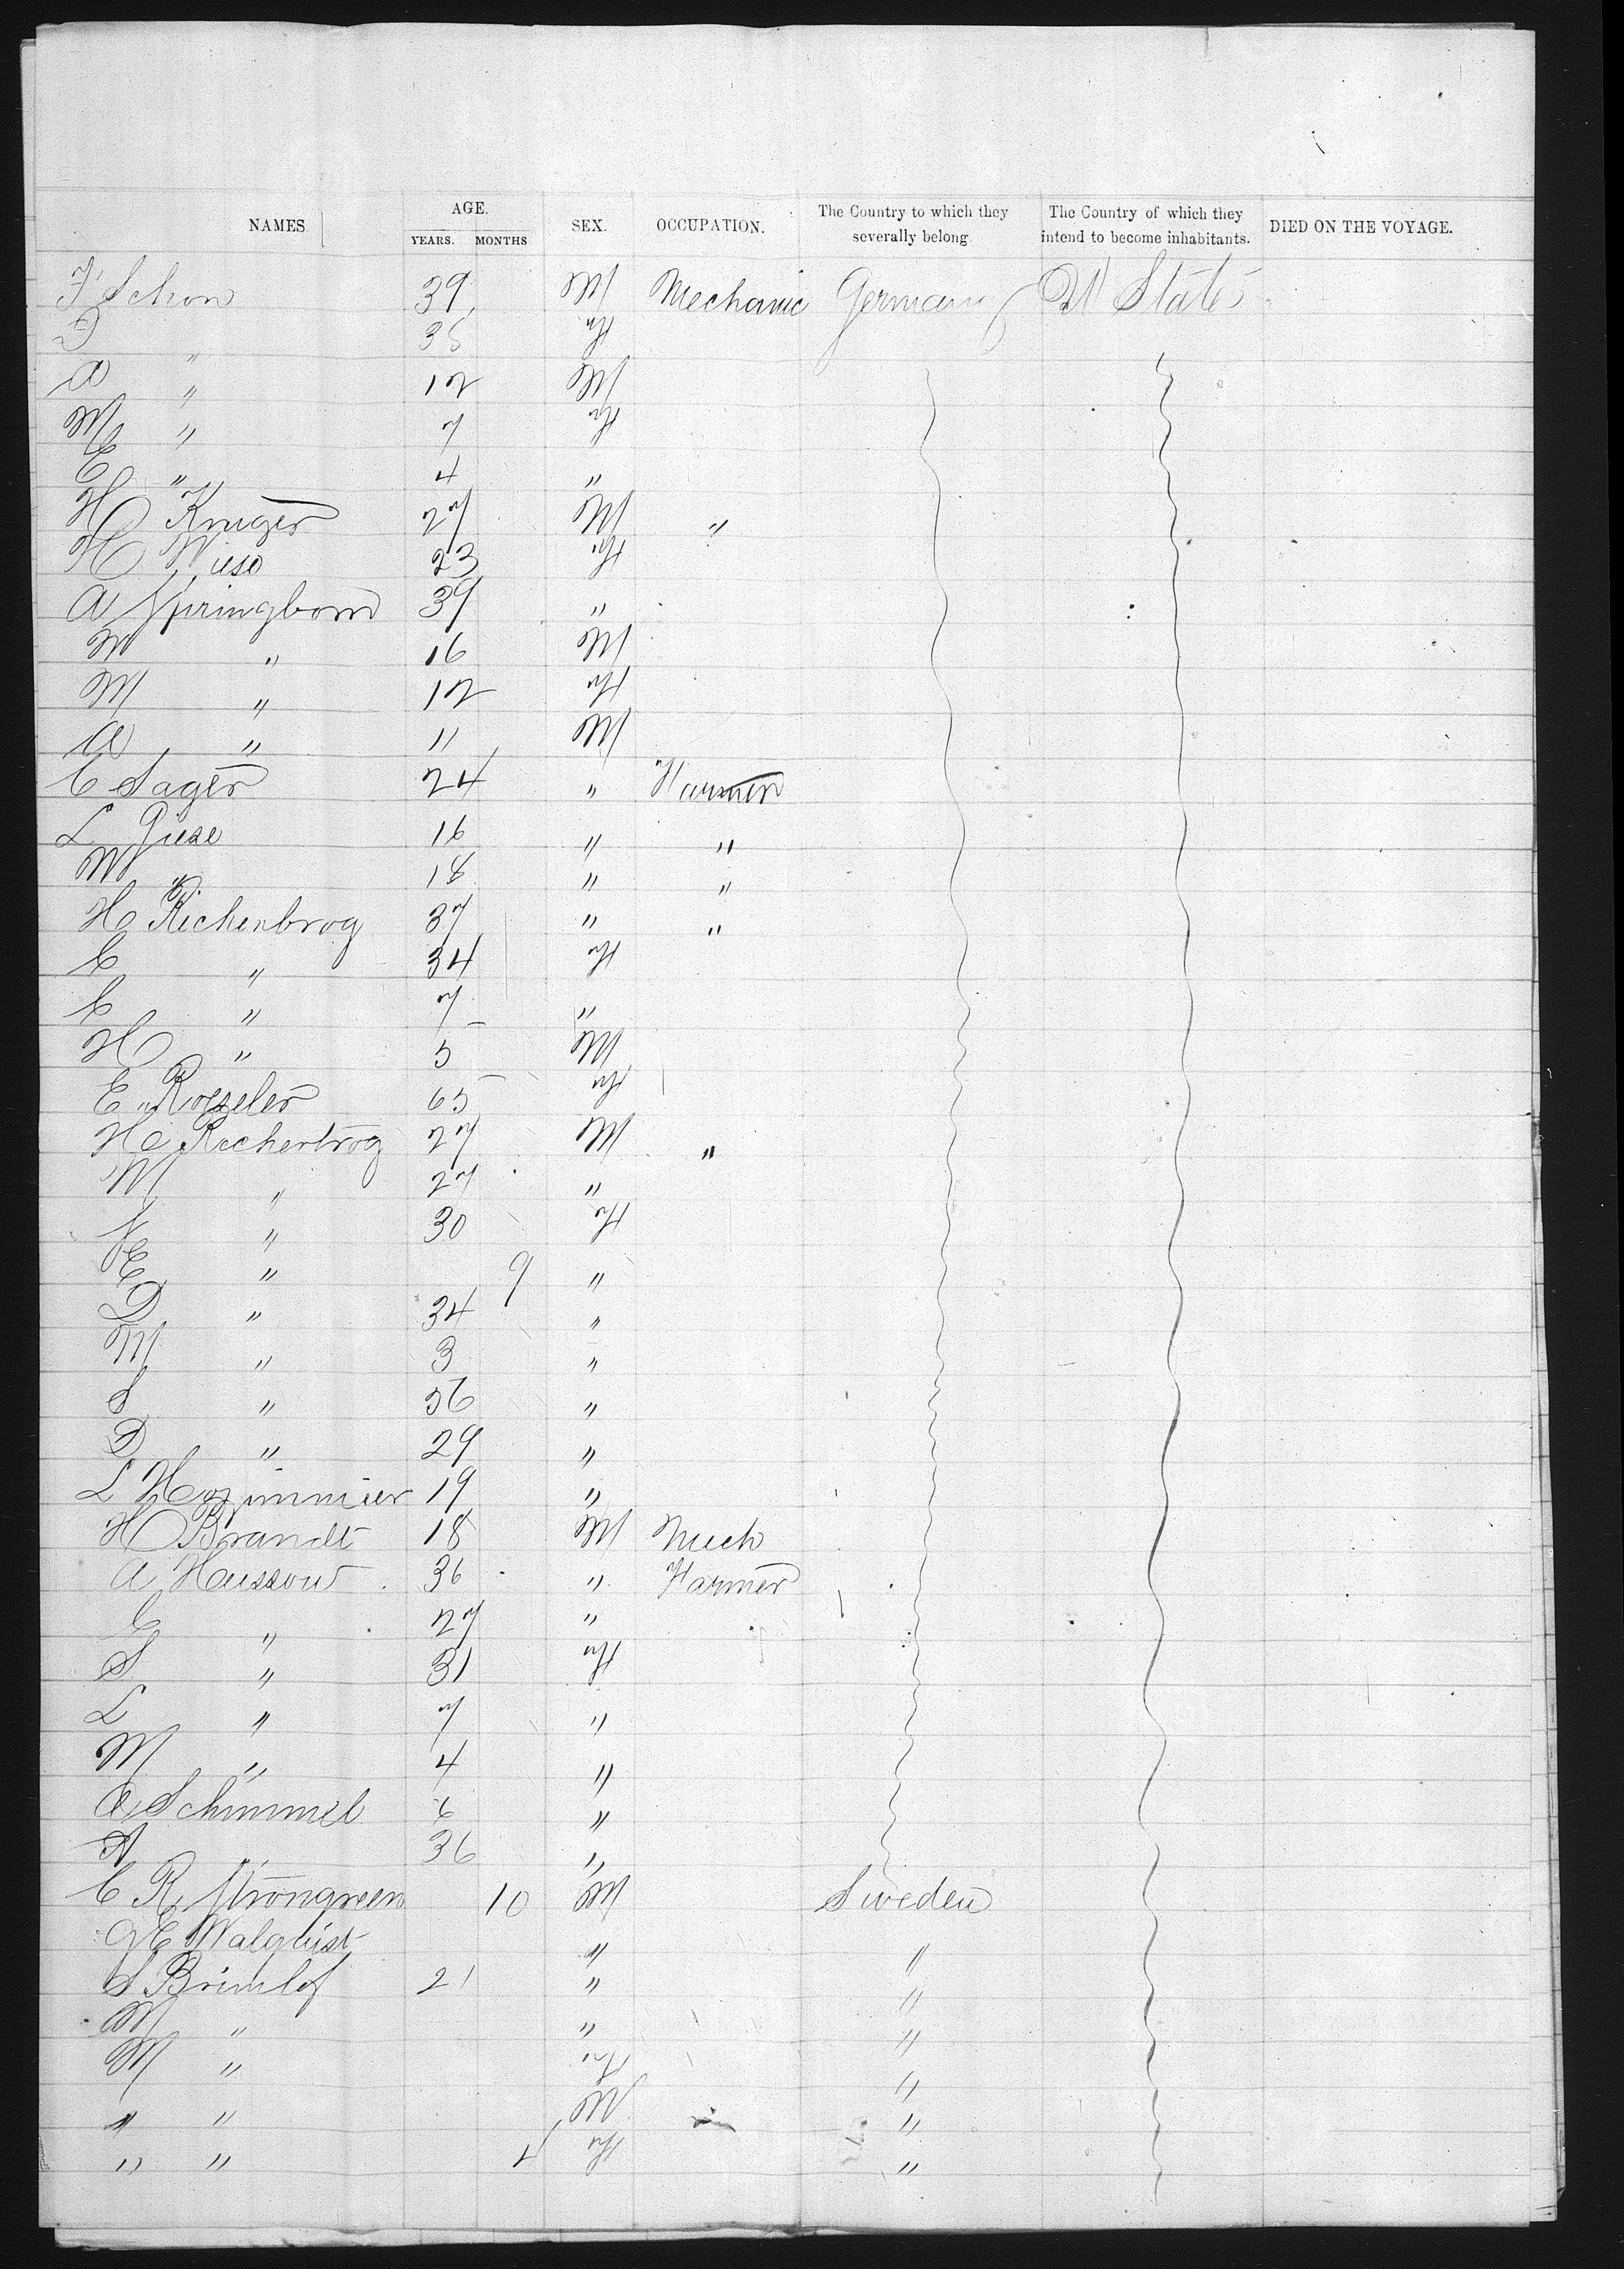 NAMES AGE. YEARS. MONTHS SEX. OCCUPATION. The Country to which they severally belong The Country of which they intend to become inhabitants. DIED ON THE VOYAGE.
F Schon 39 M Mechanic Germany U States
D " 35 F
A " 12 M
M " 7 F
E " 4 "
H Kruger 27 M "
H Wiese 23 F
A Springborn 39 "
W " 16 M
M " 12 F
A " 11 M
C Sager 24 " Farmer
L Giese 16 " "
W " 18 " "
H Richenbrog 37 " "
C " 34 F
C " 7 "
H " 5 M
E Roezeler 65 F
H Richertrog 27 M "
M " 27 "
" 30 F
E " 9 "
D " 34 "
M " 3 "
S " 56 "
D " 29 "
L 19 "
H Brandt 18 M Mech
A Haussow 36 " Farmer
C " 27 "
S " 31 F
L " 7 "
M " 4 "
A Schimmel 6 "
A " 36 "
C R Strongreen 10 M Sweden
G E Walquist " "
S Brinlof 21 " "
M " " "
M " F "
" " M "
" " F "